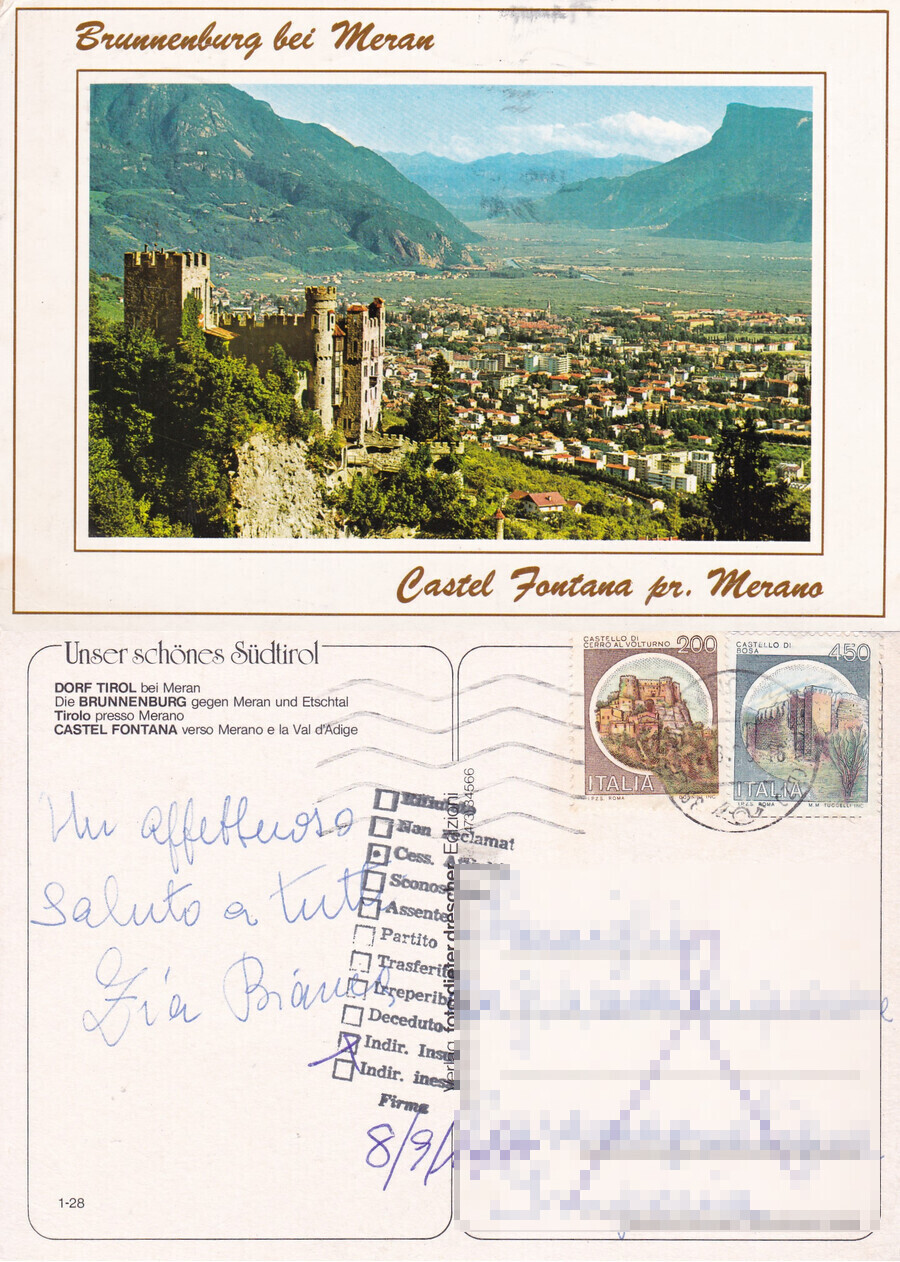 Brunnenburg bei Meran
Castel Fontana pr. Merano
Unser schönes Südtirol
DORF TIROL bei Meran
Die BRUNNENBURG gegen Meran und Etschtal
Tirolo presso Merano
CASTEL FONTANA verso Merano e la Val d'Adige
CASTELLO DI
CERRO AL VOLTURNO 200
ITALIA
I.P.Z.S. ROMA
CASTELLO DI
BOSA 450
ITALIA
I.P.Z.S. ROMA M.M. TUCCELLI INC.
Un affettuoso
saluto a tutti
Zia Bianca
Rifiutato
Non reclamat
Cess.
Sconos
Assente
Partito
Trasferit
Irreperib
Deceduto
Indir. Insu
Indir. ines
Firma
8/9/
Verlag foto-dieter drescher Edizioni
1-28